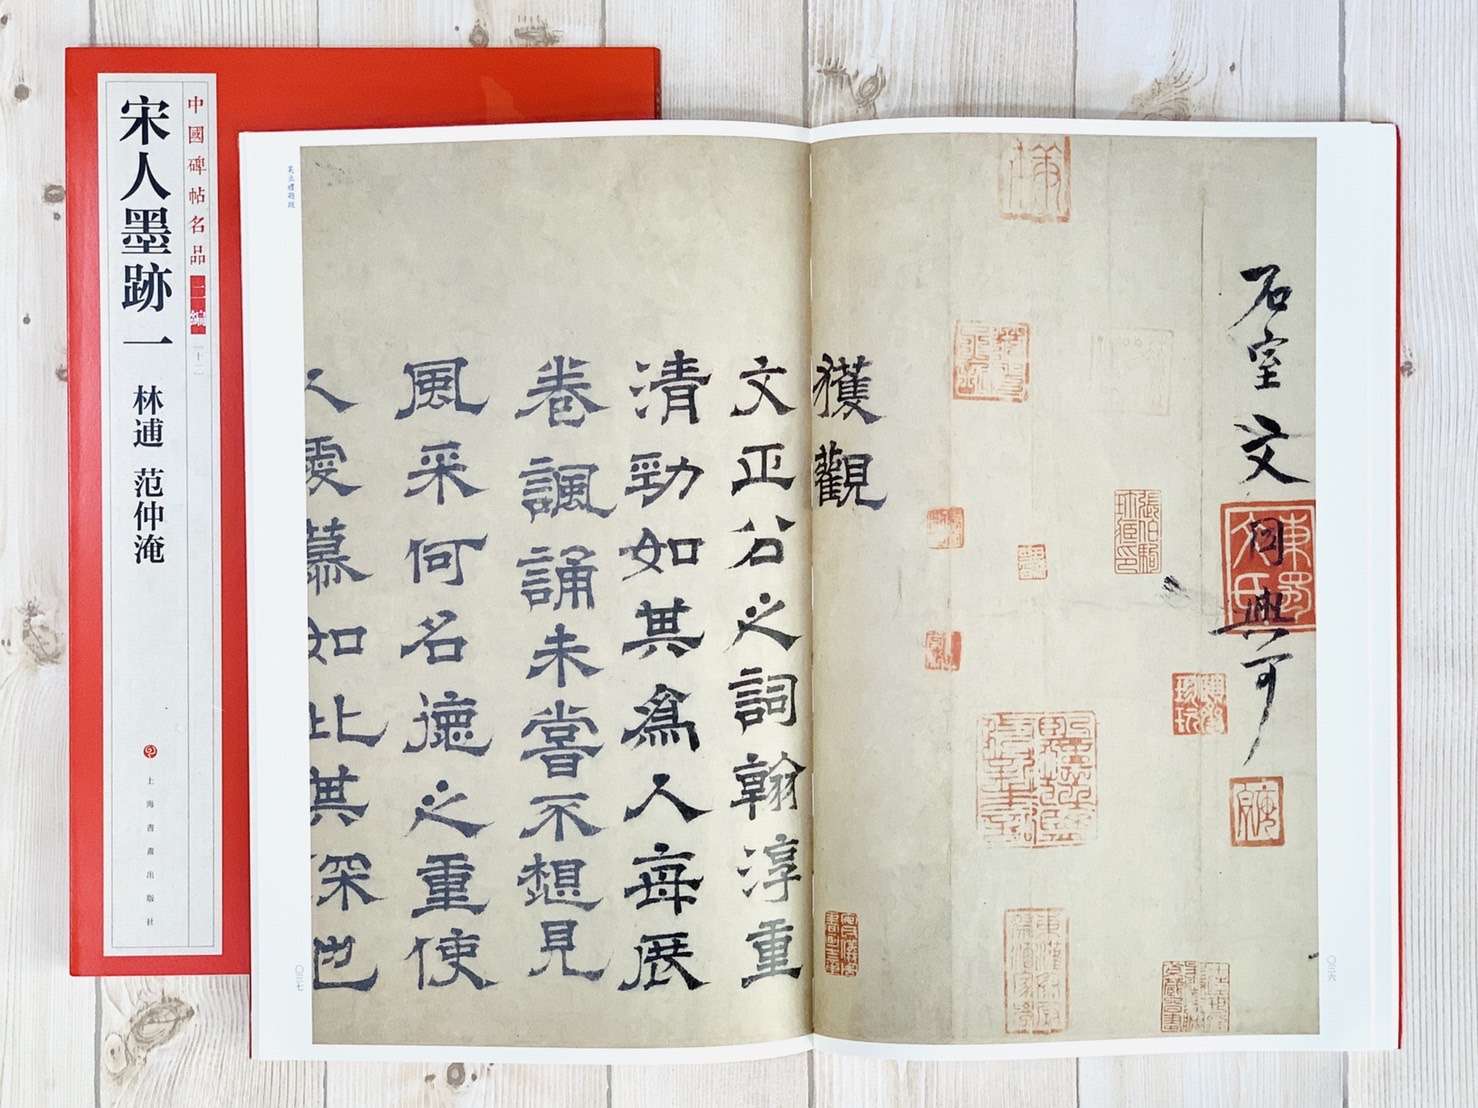 中國碑帖名品二編
十二
宋人墨跡一
林逋 范仲淹
上海書畫出版社
石室文同與可
東蜀文氏
張伯駒珍藏印
〇三六
獲觀
文正公之詞翰淳重
清勁如其爲人每展
卷諷誦未嘗不想見
風采何名德之重使
人愛慕如此其深也
吳立禮題跋
〇三七